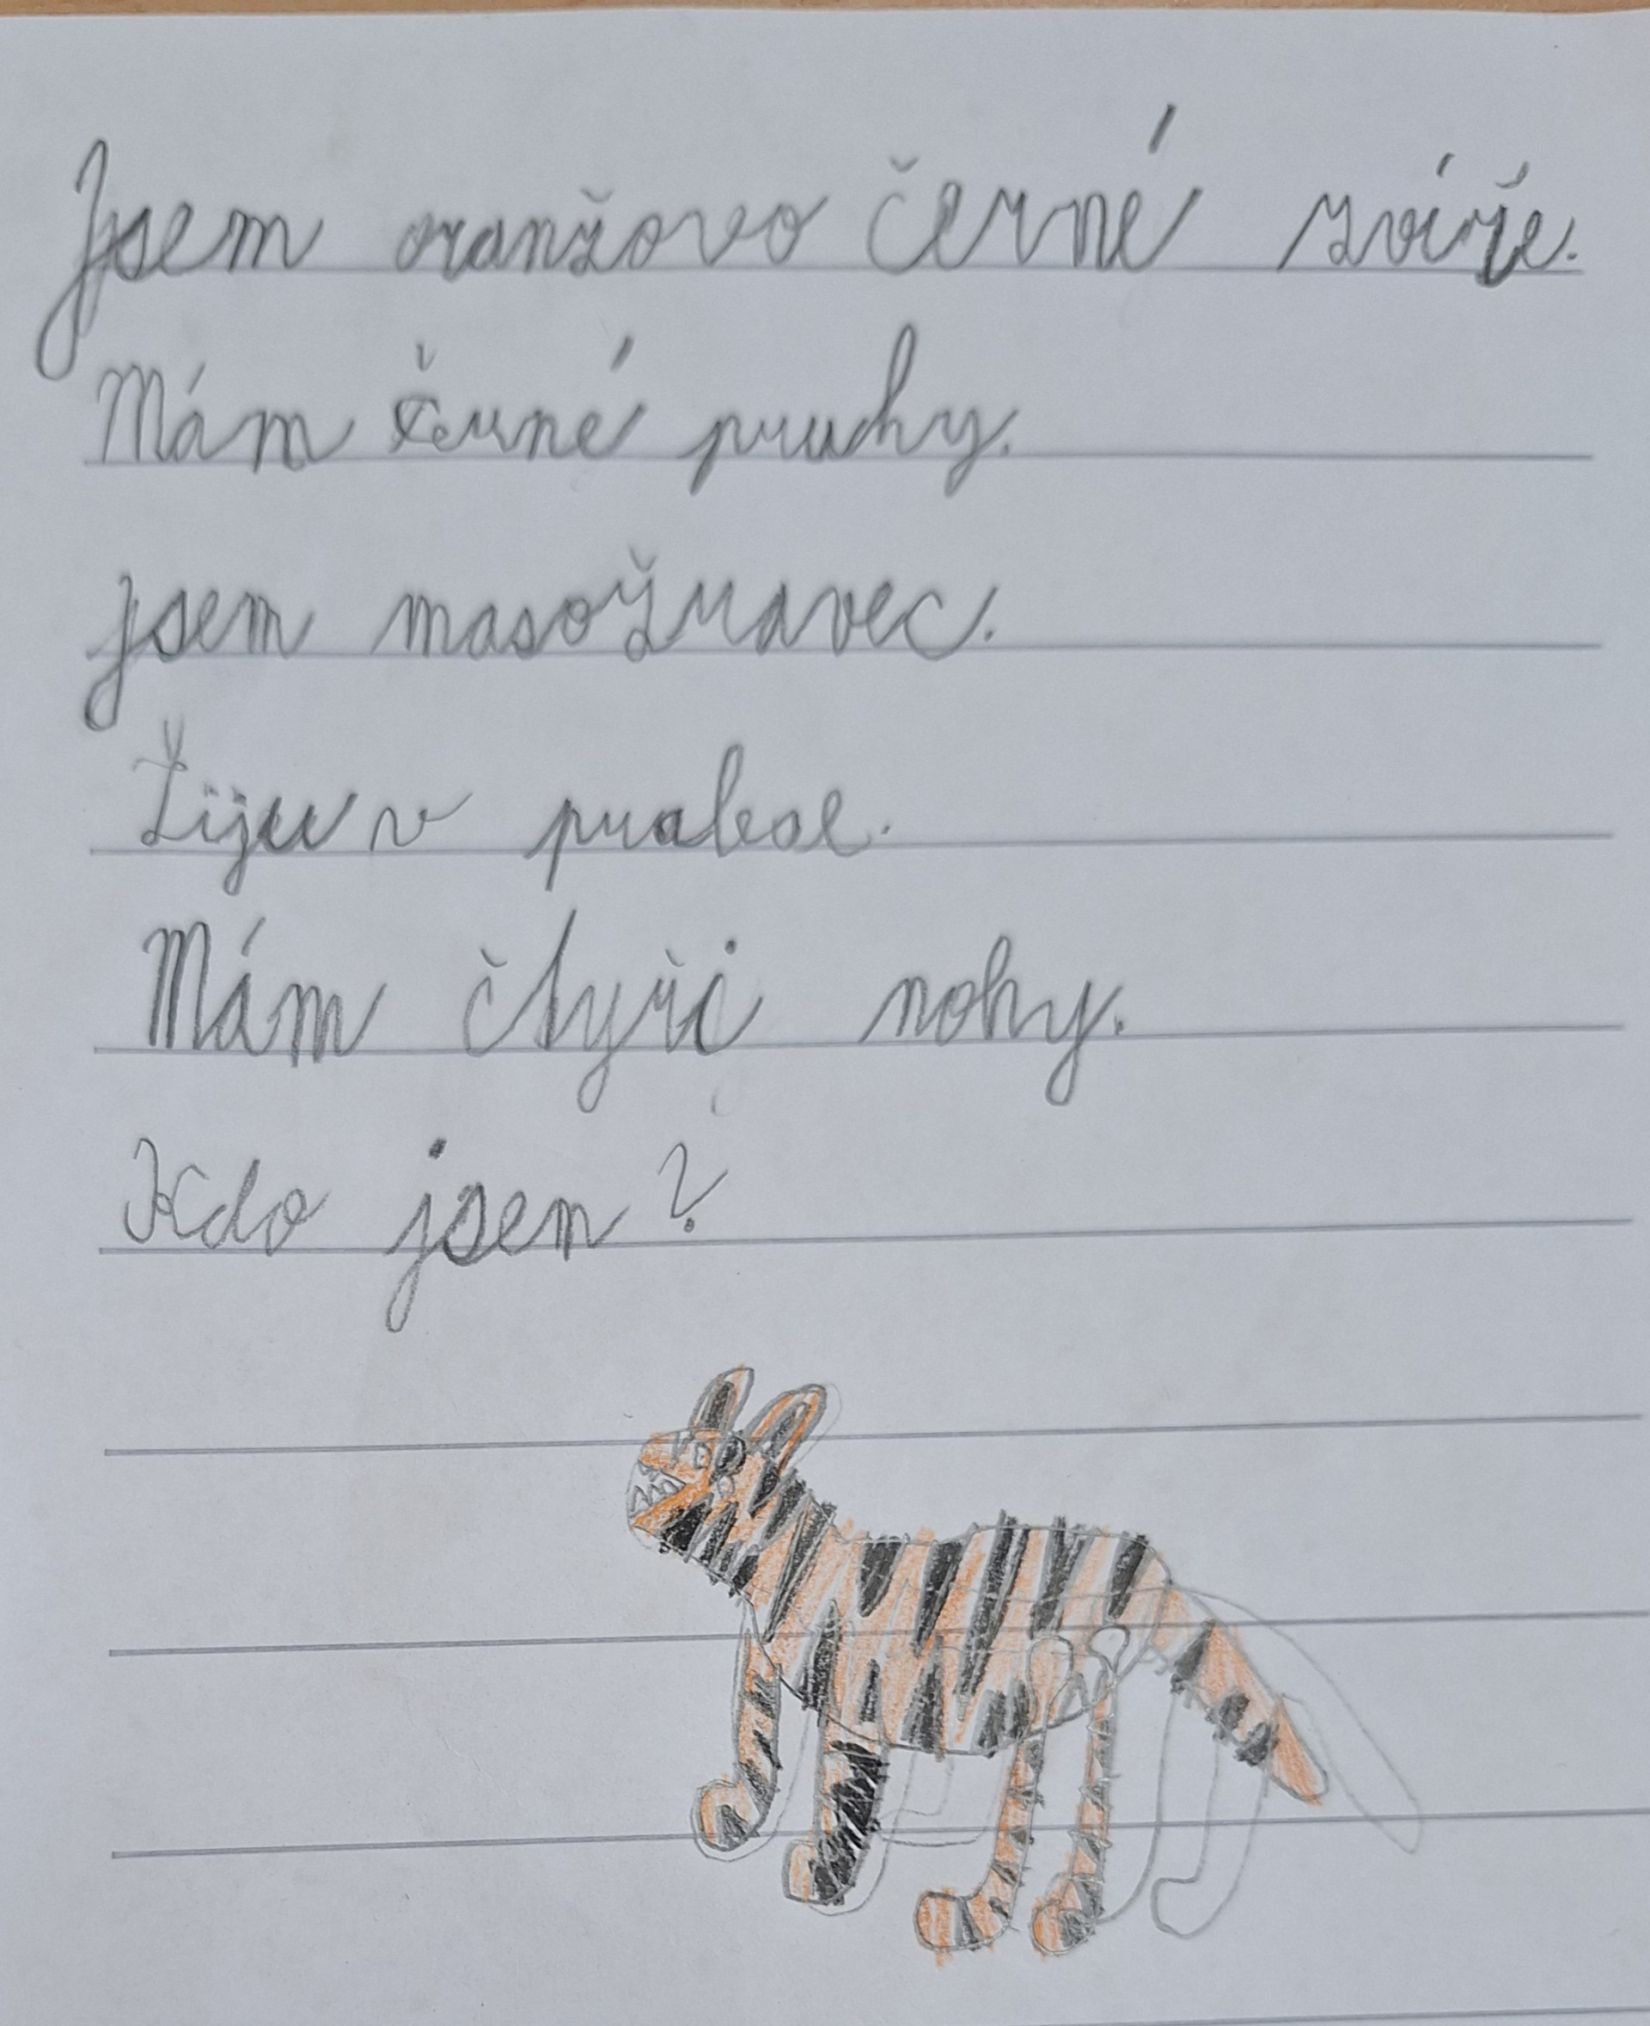 Jsem oranžovo černé zvíře.
Mám černé pruhy.
Jsem masožravec.
Žiju v pralese.
Mám čtyři nohy.
Kdo jsem?